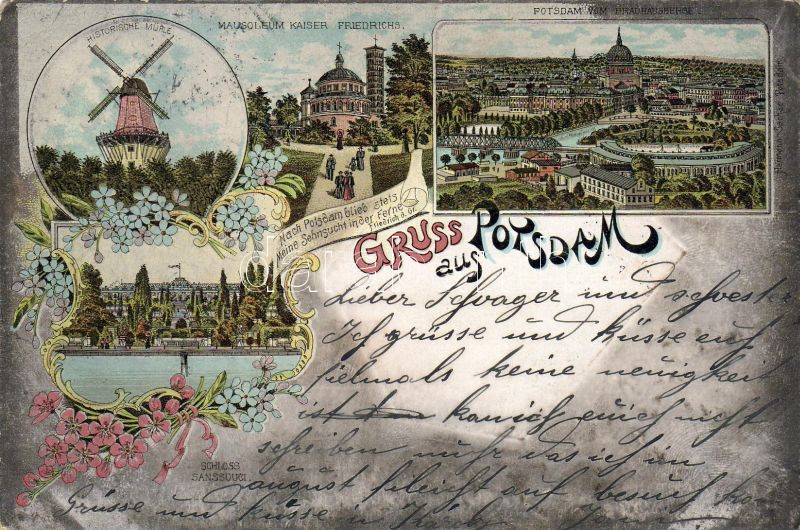 HISTORISCHE MÜHLE
MAUSOLEUM KAISER FRIEDRICHS.
POTSDAM VOM BRAUHAUSBERGE.
Nach Potsdam blieb stets
Meine Sehnsucht in der Ferne
Friedrich d. Gr.
GRUSS
aus
POTSDAM
SCHLOSS
SANSSOUCI.
Lieber Schvager und schvester
Ich grüsse und küsse euch
fielmals keine neuigkeit
ist kan ich euich nicht
schreiben nuhr das ich im
august fileicht auf besuch
Grüsse und küsse